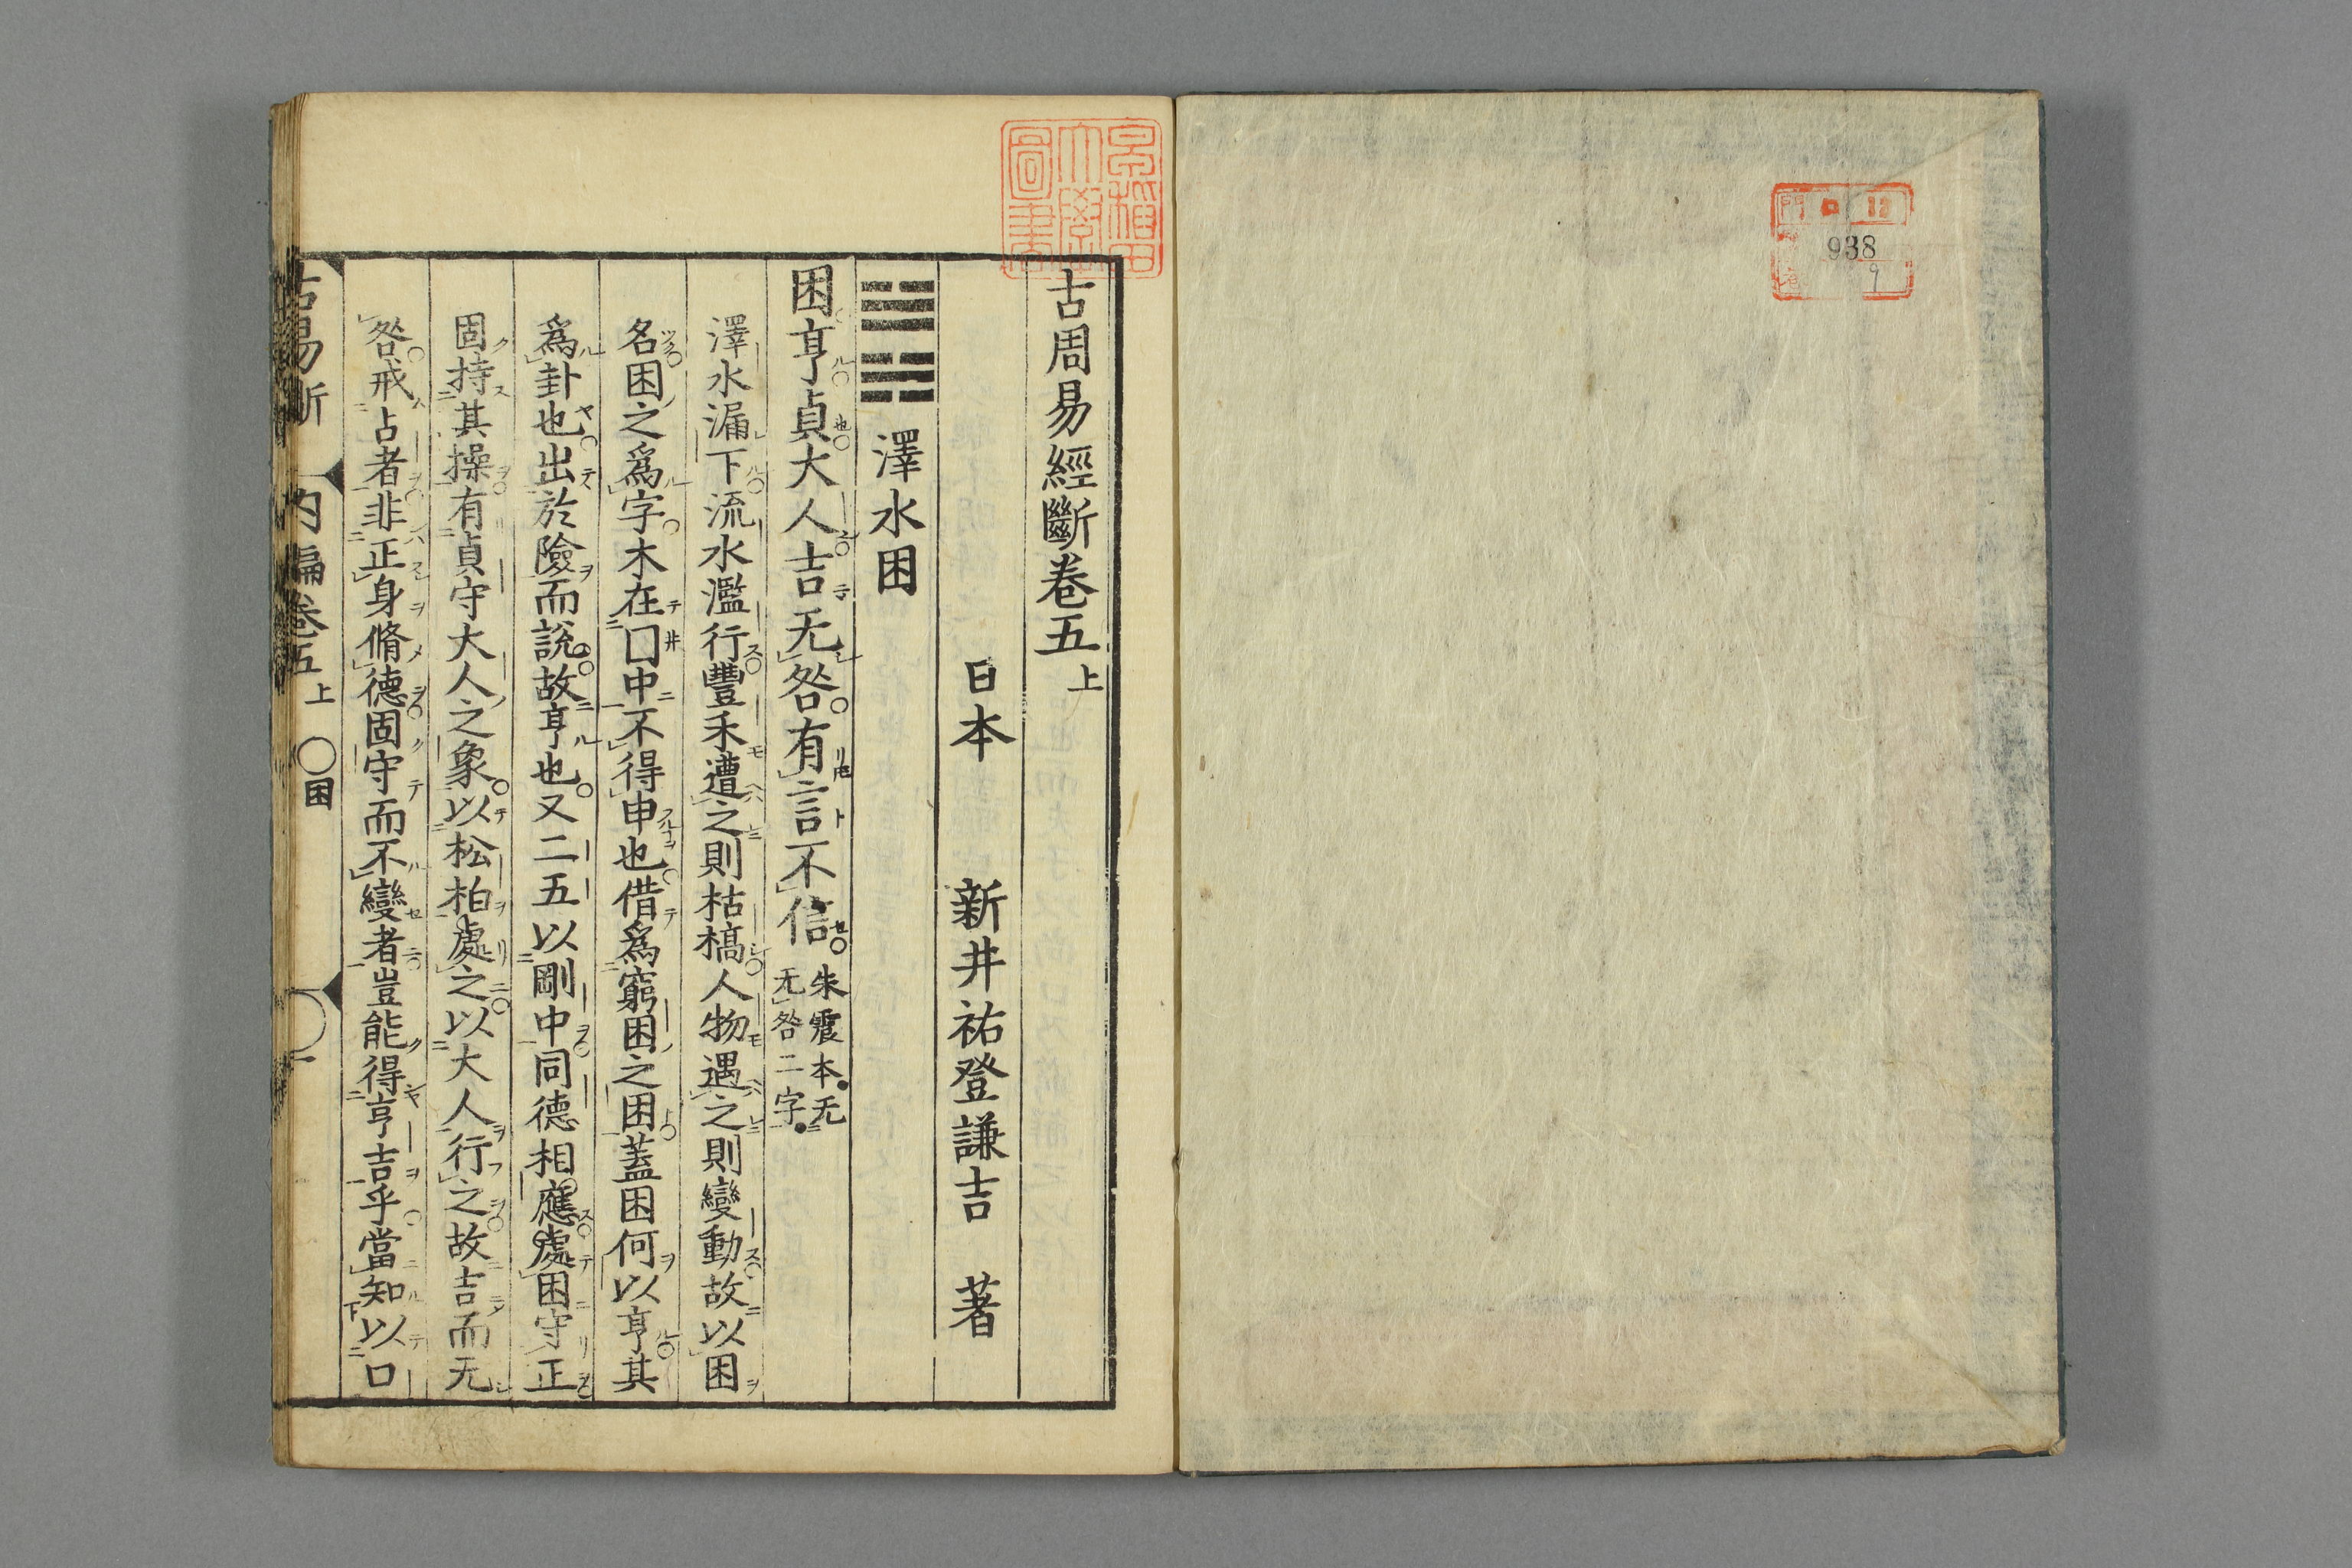 門 ロ 12
938
9
早稲田
大學
圖書
古周易經斷卷五上
日本 新井祐登謙吉 著
澤水困
困亨貞大人吉无咎有言不信 朱震本无
无咎二字
澤水漏下流水濫行豐禾遭之則枯槁人物遇之則變動故以困
名困之爲字木在囗中不得申也借爲窮困之困蓋困何以亨其
爲卦也出於險而說故亨也又二五以剛中同德相應處困守正
固持其操有貞守大人之象以松柏處之以大人行之故吉而无
咎戒占者非正身脩德固守而不變者豈能得亨吉乎當知以口
古易斷 内編卷五上 〇困 一